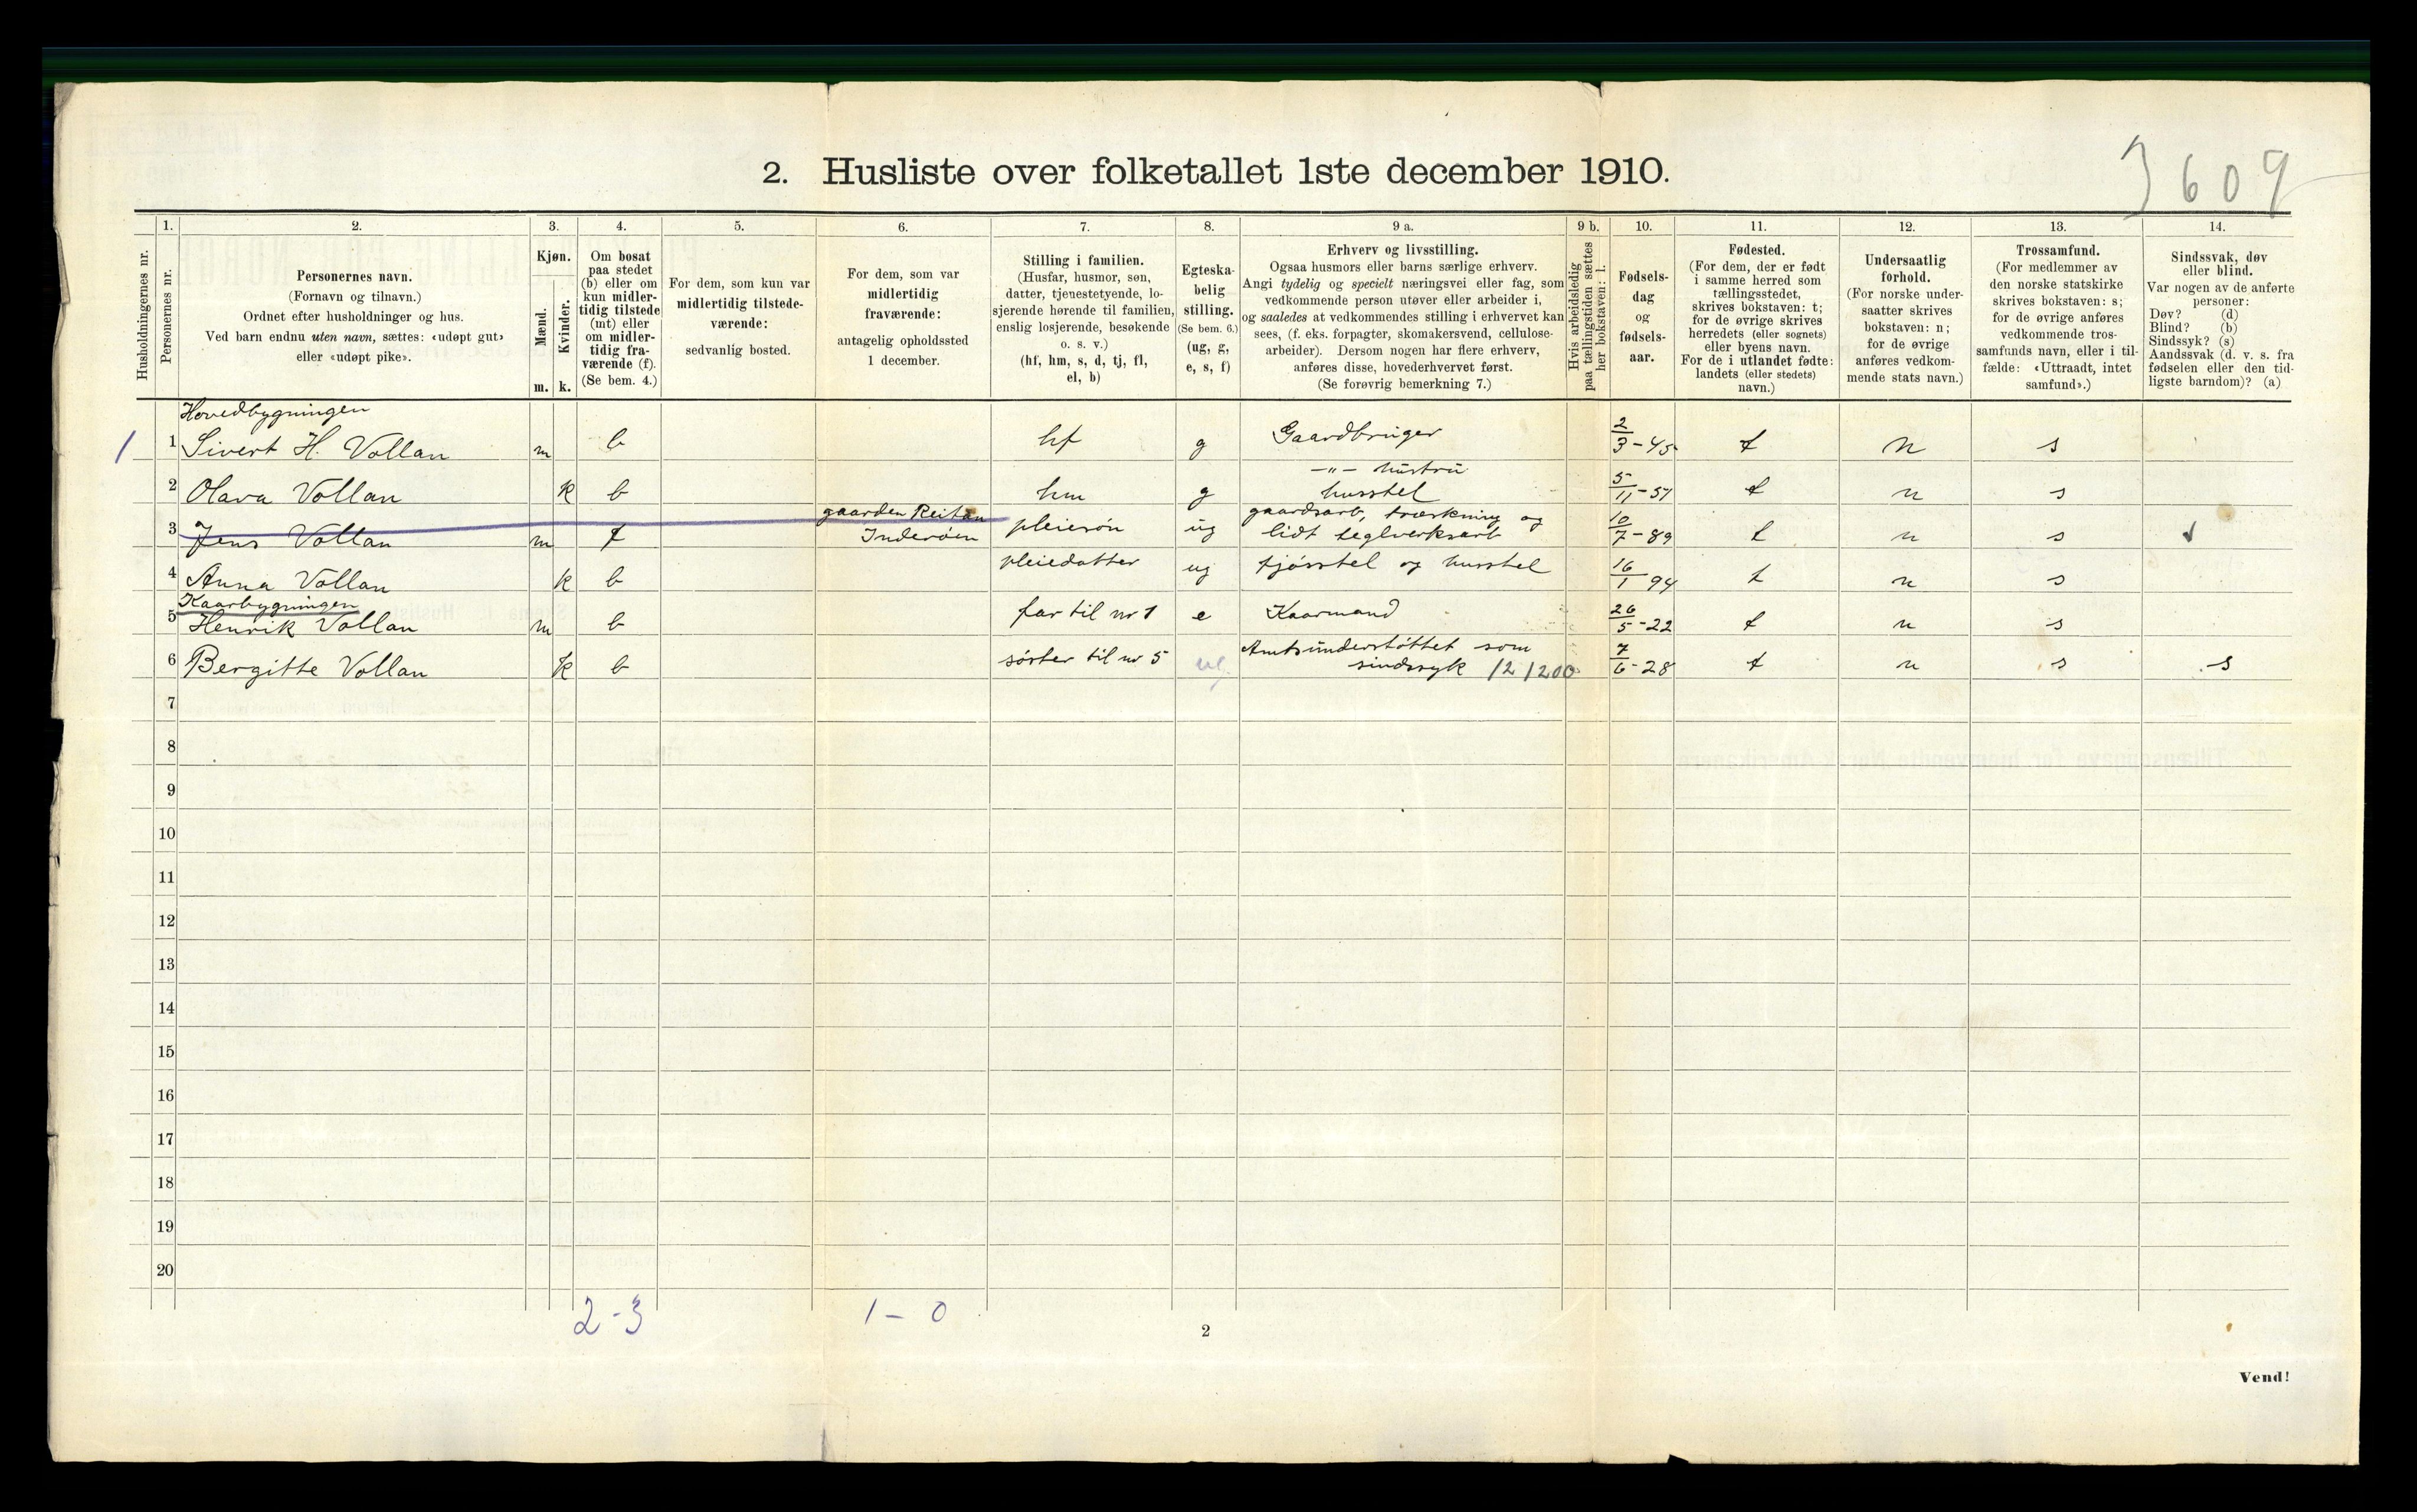 3609
2. Husliste over folketallet 1ste december 1910.
Husholdningernes nr.
1.
Personernes nr.
2.
Personernes navn.
(Fornavn og tilnavn.)
Ordnet efter husholdninger og hus.
Ved barn endnu uten navn, sættes: «udøpt gut»
eller «udøpt pike».
3.
Kjøn.
Mænd.
Kvinder.
m. k.
4.
Om bosat
paa stedet
(b) eller om
kun midler-
tidig tilstede
(mt) eller
om midler-
tidig fra-
værende (f).
(Se bem. 4.)
5.
For dem, som kun var
midlertidig tilstede-
værende:
sedvanlig bosted.
6.
For dem, som var
midlertidig
fraværende:
antagelig opholdssted
1 december.
7.
Stilling i familien.
(Husfar, husmor, søn,
datter, tjenestetyende, lo-
sjerende hørende til familien,
enslig losjerende, besøkende
o. s. v.)
(hf, hm, s, d, tj, fl,
el, b)
8.
Egteska-
belig
stilling.
(Se bem. 6.)
(ug, g,
e, s, f)
9 a.
Erhverv og livsstilling.
Ogsaa husmors eller barns særlige erhverv.
Angi tydelig og specielt næringsvei eller fag, som
vedkommende person utøver eller arbeider i,
og saaledes at vedkommendes stilling i erhvervet kan
sees, (f. eks. forpagter, skomakersvend, cellulose-
arbeider). Dersom nogen har flere erhverv,
anføres disse, hovederhvervet først.
(Se forøvrig bemerkning 7.)
9 b.
Hvis arbeidsledig
paa tællingstiden sættes
her bokstaven: l.
10.
Fødsels-
dag
og
fødsels-
aar.
11.
Fødested.
(For dem, der er født
i samme herred som
tællingsstedet,
skrives bokstaven: t;
for de øvrige skrives
herredets (eller sognets)
eller byens navn.
For de i utlandet fødte:
landets (eller stedets)
navn.)
12.
Undersaatlig
forhold.
(For norske under-
saatter skrives
bokstaven: n;
for de øvrige
anføres vedkom-
mende stats navn.)
13.
Trossamfund.
(For medlemmer av
den norske statskirke
skrives bokstaven: s;
for de øvrige anføres
vedkommende tros-
samfunds navn, eller i til-
fælde: «Uttraadt, intet
samfund».)
14.
Sindssvak, døv
eller blind.
Var nogen av de anførte
personer:
Døv? (d)
Blind? (b)
Sindssyk? (s)
Aandssvak (d. v. s. fra
fødselen eller den tid-
ligste barndom)? (a)
Hovedbygningen
1 1 Sivert H. Vollan m b hf g Gaardbruger 2/3-45 t n s
-"- hustru
2 Olava Vollan k b hm g husstel 5/11-57 t n s
gaarden Reitan gaardsarb, træskning og
3 Jens Vollan m f Inderøen pleiesøn ug lidt teglverksarb 10/7-89 t n s
4 Anna Vollan k b pleiedatter ug fjøsstel og husstel 16/1 94 t n s
Kaarbygningen
5 Henrik Vollan m b far til nr 1 e Kaarmand 26/5-22 t n s
Amtsunderstøttet som
6 Bergitte Vollan k b søster til nr 5 ug sindssyk 12 1200 7/6-28 t n s s
7
8
9
10
11
12
13
14
15
16
17
18
19
20
2-3 1-0
2
Vend!